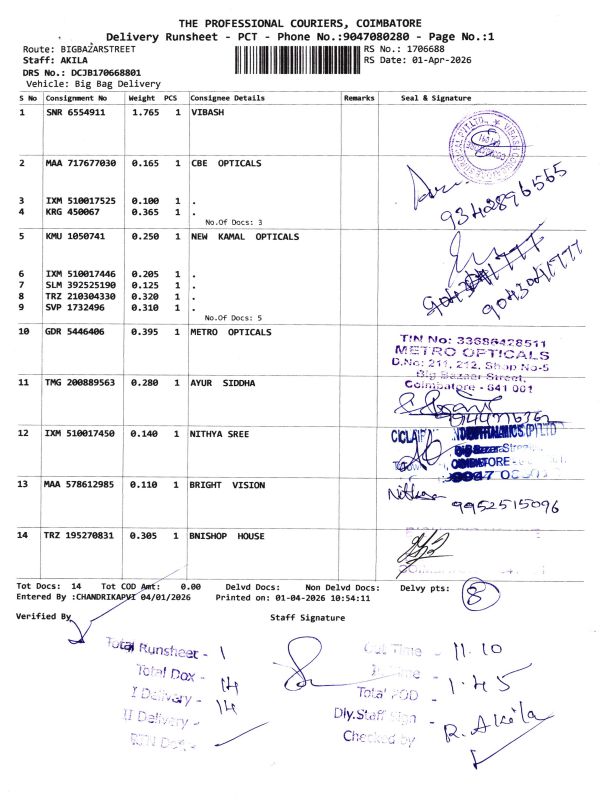 THE PROFESSIONAL COURIERS, COIMBATORE
Delivery Runsheet - PCT - Phone No.:9047080280 - Page No.:1
Route: BIGBAZARSTREET
RS No.: 1706688
Staff: AKILA
RS Date: 01-Apr-2026
DRS No.: DCJB170668801
Vehicle: Big Bag Delivery
S No Consignment No Weight PCS Consignee Details Remarks Seal & Signature
1 SNR 6554911 1.765 1 VIBASH
2 MAA 717677030 0.165 1 CBE OPTICALS
9342896565
3 IXM 510017525 0.100 1 .
4 KRG 450067 0.365 1 .
No.Of Docs: 3
5 KMU 1050741 0.250 1 NEW KAMAL OPTICALS
6 IXM 510017446 0.205 1 .
7 SLM 392525190 0.125 1 .
8 TRZ 210304330 0.320 1 .
9 SVP 1732496 0.310 1 .
No.Of Docs: 5
10 GDR 5446406 0.395 1 METRO OPTICALS
TIN No: 33686428511
METRO OPTICALS
D.No: 211, 212, Shop No-5
Big Bazaar Street,
Coimbatore - 641 001
11 TMG 200889563 0.280 1 AYUR SIDDHA
12 IXM 510017450 0.140 1 NITHYA SREE
13 MAA 578612985 0.110 1 BRIGHT VISION
9952515096
14 TRZ 195270831 0.305 1 BNISHOP HOUSE
Tot Docs: 14 Tot COD Amt: 0.00 Delvd Docs: Non Delvd Docs: Delvy pts: 8
Entered By :CHANDRIKAPVI 04/01/2026 Printed on: 01-04-2026 10:54:11
Verified By Staff Signature
Total Runsheet - 1
Total Dox - 14
I Delivery - 14
II Delivery -
Out Time - 11.10
1.45
Total POD -
Dly.Staff Sign - R. Akila
Checked by